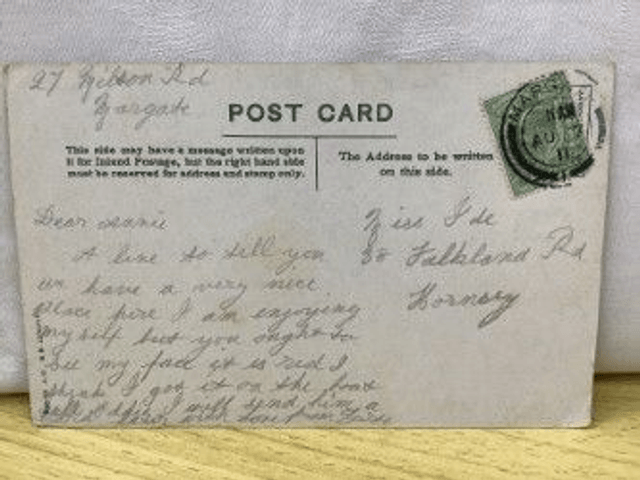 27 Milton Rd
Margate
POST CARD
This side may have a message written upon
it for Inland Postage, but the right hand side
must be reserved for address and stamp only.
The Address to be written
on this side.
MARG
AU
11
Dear Annie
A line to tell you
we have a very nice
place here I am enjoying
my self but you ought to
see my face it is red I
think I got it on the boat
I will send him a
card with love from
Miss Ide
80 Falkland Rd
Hornsey